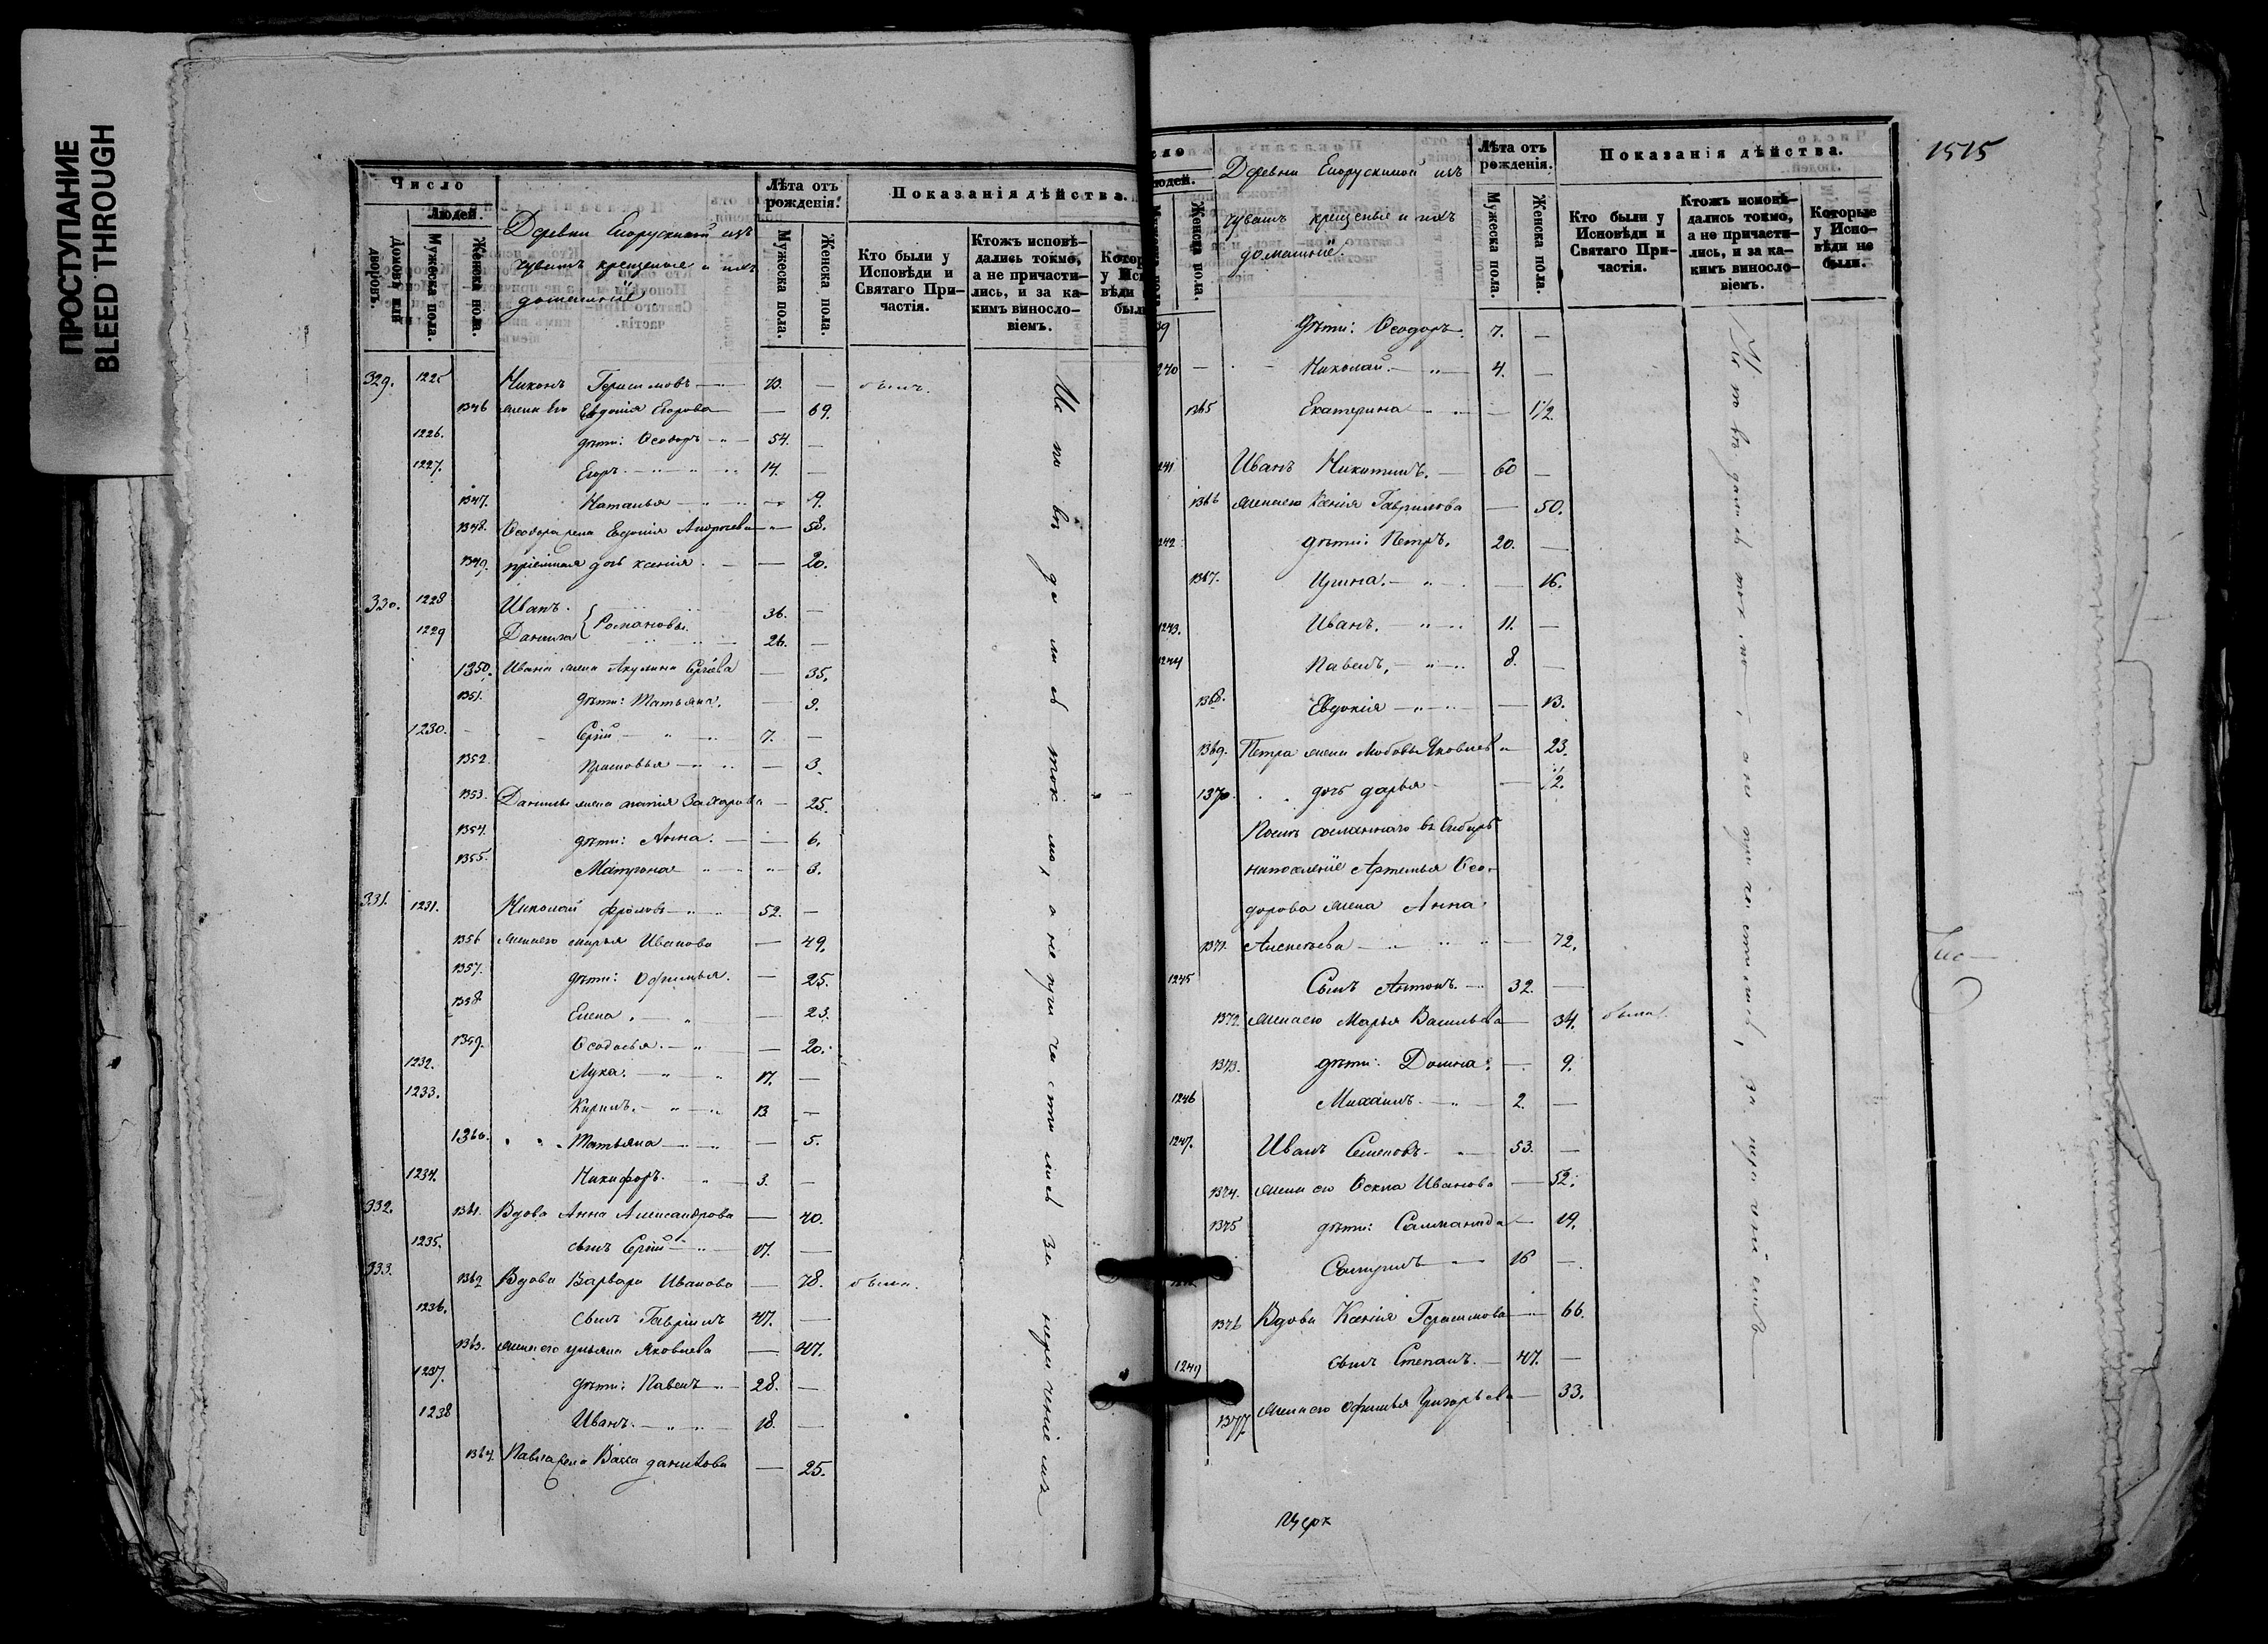 ПРОСТУПАНИЕ
BLEED THROUGH
Число
Людей.
Домовъ или дворовъ.
Мужеска пола.
Женска пола.
Деревни чувашъ крещеные и ихъ
домашніе
Лѣта отъ рожденія.
Мужеска пола.
Женска пола.
Показанія дѣйства.
Кто были у Исповѣди и Святаго Причастія.
Ктожъ исповѣдались токмо, а не причастились, и за какимъ винословіемъ.
329. 1225 Никонъ Герасимовъ 73. — былъ.
1346 жена его Евдокія Егорова — 69.
1226. дѣти: Ѳеодоръ 54. —
1227. Егоръ 14. —
1347. Наталья — 9.
1348. Ѳеодора жена Евдокія — 58.
1349. пріемная дочь Ксенія — 20.
330. 1228 Иванъ 36. —
1229 Данила } Романовы 26. —
1350. Ивана жена Акулина — 35.
1351. дѣти: Татьяна. — 9.
1230. Сергій 7. —
1352. Прасковья — 3.
1353. Данилы жена Захарова — 25.
1354. дѣти: Анна. — 6.
1355. Матрона — 3.
331. 1231. Николай Фроловъ 52. —
1356 жена его Марья Иванова — 49.
1357. дѣти: Офимья. — 25.
1358. Елена. — 23.
1359. Ѳеодосья. — 20.
1232. Лука. 17. —
1233. Кирилъ. 13 —
1360. Татьяна — 5.
1234. Никифоръ. 3. —
332. 1361. Вдова Анна Александрова — 40.
1235. сынъ Сергій 17. —
333. 1362 Вдова Варвара Иванова — 78. была.
1236. сынъ Гавріилъ 47. —
1363. жена его Ульяна Яковлева — 47.
1237. дѣти: Павелъ 28. —
1238 Иванъ. 18. —
1364. Павла жена Васса Данилова — 25.
Исповѣдались токмо, а не причастились за нерачениемъ
1515
Людей.
Женска пола.
Деревни изъ
чувашъ крещеные и ихъ
домашніе.
Лѣта отъ рожденія.
Мужеска пола.
Женска пола.
Показанія дѣйства.
Кто были у Исповѣди и Святаго Причастія.
Ктожъ исповѣдались токмо, а не причастились, и за какимъ винословіемъ.
Которые у Исповѣди не были.
39 дѣти: Ѳеодоръ. 7. —
240 Николай. 4. —
1365 Екатерина — 1 1/2
241 Иванъ Никитинъ. 60 —
1366 жена его Ксенія Гаврилова — 50.
242 дѣти: Петръ. 20. —
1367. Ирина. — 16.
1243. Иванъ. 11. —
1244 Павелъ, 8. —
1368. Евдокія — 13.
1369. Петра жена Любовь Яковлева 23.
1370. дочь Дарья — 1/2.
сосланнаго въ Сибирь
на поселеніе Артемья Ѳео-
дорова жена Анна
1371. Алексѣева — 72.
1245 Сынъ Антонъ. 32. —
1372. жена его Марья Васильева — 34. была.
1373. дѣти: Домна. — 9.
1246 Михаилъ. 2. —
1247. Иванъ Семеновъ 53. —
1374. жена его Ѳекла Иванова — 52.
1375 дѣти: — 19.
16 —
1376 Вдова Ксенія Герасимова 66.
1249 сынъ Степанъ. 47. —
1377 жена его Офимья Григорьева — 33.